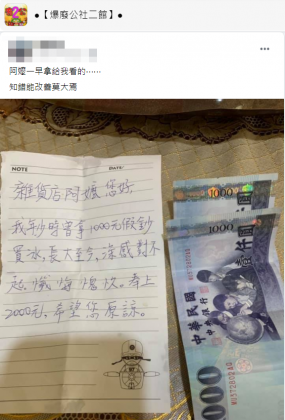 ●【爆廢公社二館】●
阿嬤一早拿給我看的……
知錯能改善莫大焉
NOTE
DATE:
雜貨店阿嬤您好
我年少時曾拿1000元假鈔
買冰,長大至今,深感對不
起懺悔
奉上
2000元,希望您原諒。
1000
1000
壹仟圓
中華民國
中央銀行
000